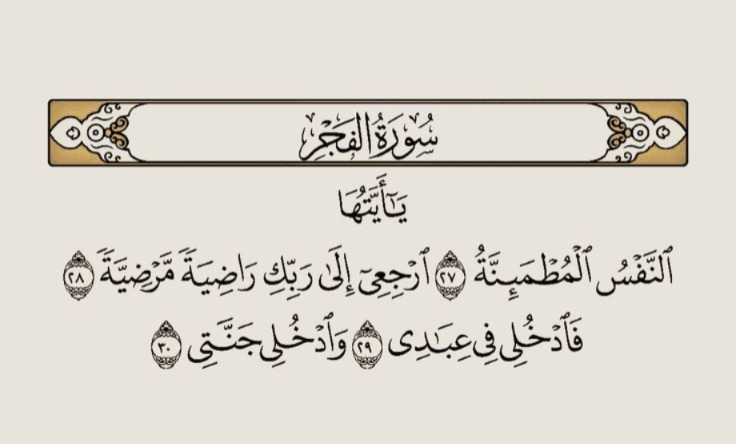 سُورَةُ الفَجْرِ
يَـٰٓأَيَّتُهَا
ٱلنَّفْسُ ٱلْمُطْمَئِنَّةُ ٢٧ ٱرْجِعِىٓ إِلَىٰ رَبِّكِ رَاضِيَةً مَّرْضِيَّةً ٢٨
فَٱدْخُلِى فِى عِبَـٰدِى ٢٩ وَٱدْخُلِى جَنَّتِى ٣٠